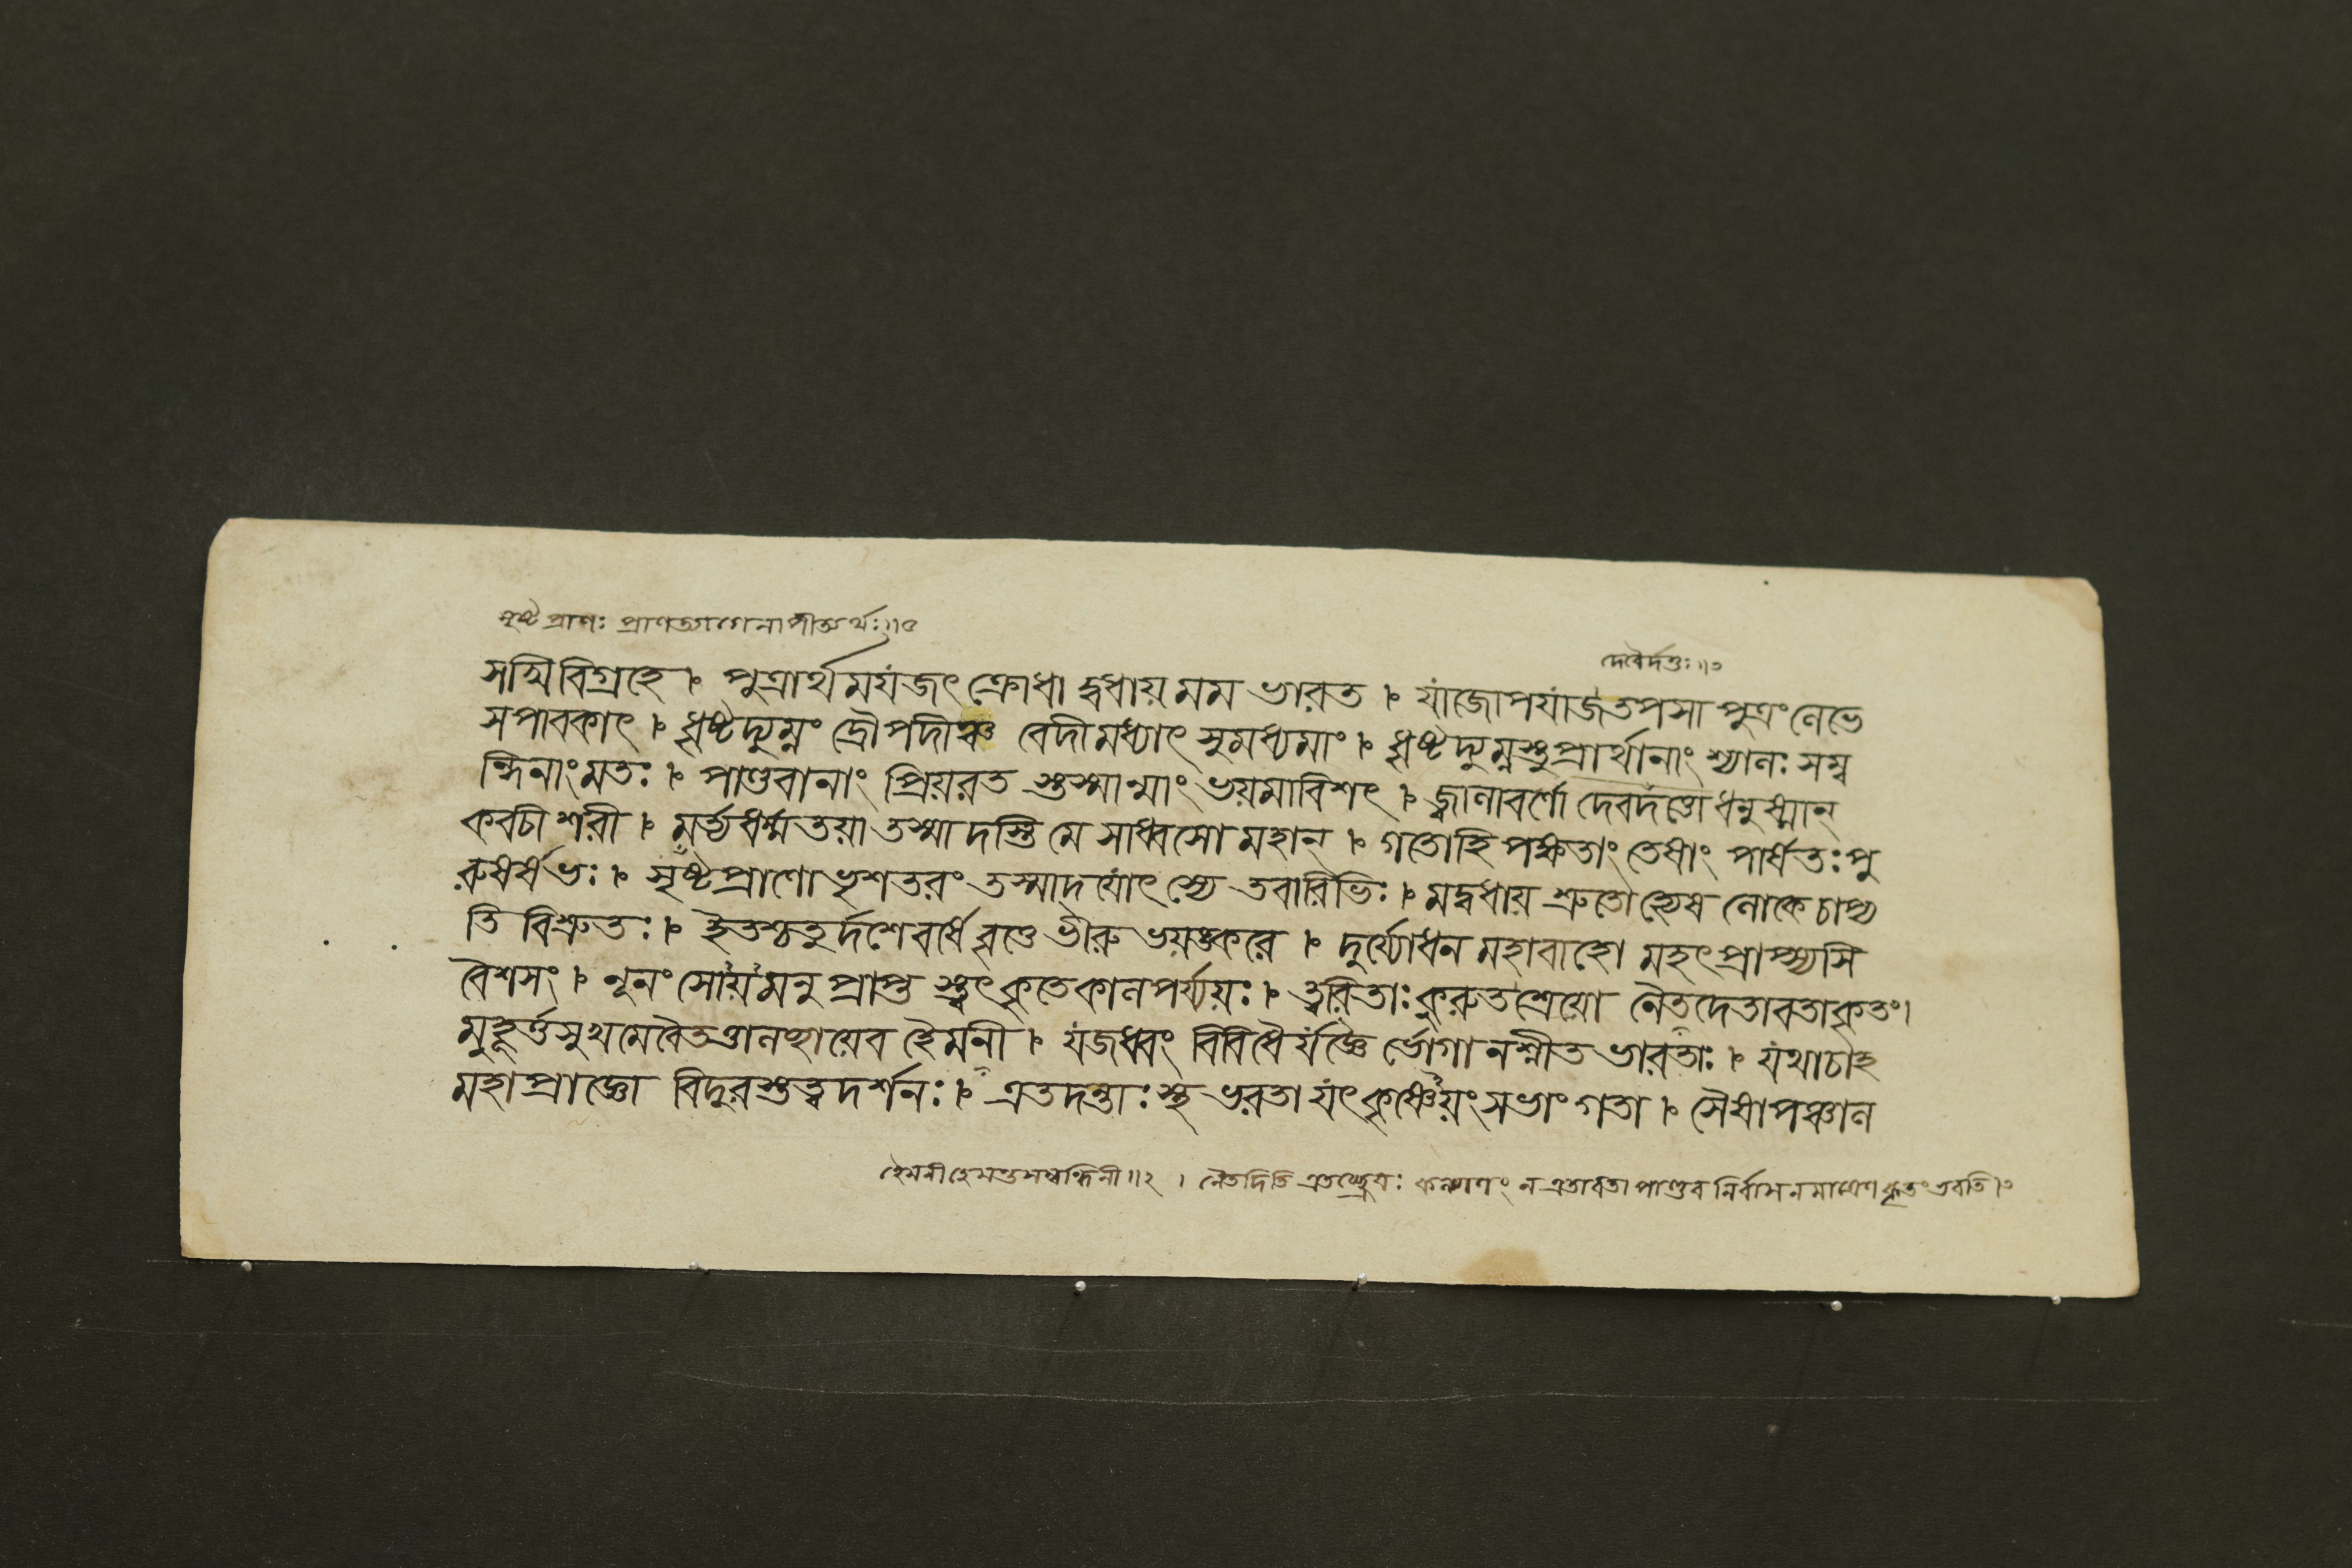 সৃষ্টপ্রাণঃ প্রাণত্যাগেনাপীত্যর্থঃ॥৫
দেবৈর্দত্তঃ॥৩
সখিবিগ্রহে । পুত্রার্থমযজৎ ক্রোধা দ্বধায় মম ভারত । যাজোপযাজতপসা পুত্রং লেভে
সপাবকাৎ । ধৃষ্টদ্যুম্নং দ্রৌপদীঞ্চ বেদীমধ্যাৎ সুমধ্যমাং । ধৃষ্টদ্যুম্নস্তুপ্রার্থানাং শ্যালঃ সম্ব
ন্ধিনাংমতঃ । পাণ্ডবানাং প্রিয়রত স্তুস্মান্মাং ভয়মাবিশৎ । জ্বালাবর্ণো দেবদত্তো ধনুষ্মান্
কবচী শরী । মর্ত্যধর্ম্মতয়া তস্মা দস্তি মে সাধ্বসো মহান্ । গতোহি পক্ষতাং তেষাং পার্ষতঃ পু
রুষর্ষভঃ । সৃষ্টপ্রাণো ভৃশতরং তস্মাদ্যোৎস্যে তবারিভিঃ । মদ্বধায় শ্রুতো হ্যেষ লোকে চাপ্য
তি বিশ্রুতঃ । ইতশ্চতুর্দশে বর্ষে রণে ভীরু ভয়ঙ্করে । দুর্য্যোধন মহাবাহো মহৎপ্রাপ্স্যসি
বৈশসং । নূনং সোয়মনু প্রাপ্ত স্ত্বৎকৃতেকালপর্য্যয়ঃ । ত্বরিতাঃ কুরুত শ্রেয়ো নৈতদেতাবতাকৃতং।
মুহূর্ত্তসুখমেবৈতত্তালচ্ছায়েব হৈমনী । যজধ্বং বিবিধৈর্যজ্ঞৈ র্ভোগানশ্নীত ভারতাঃ । যথাচাহ
মহাপ্রাজ্ঞো বিদুরস্তত্ত্বদর্শনঃ । এতদন্তাঃ স্থ ভরতা যৎকৃষ্ণেয়ং সভাং গতা । সৈষাপঞ্চাল
হৈমনী হেমন্তসম্বন্ধিনী॥২ । নৈতদিতি এতচ্ছ্রেয়ঃ কল্যাণং ন এতাবতা পাণ্ডব নির্বাসনমাত্রেণ কৃতং ভবতি।৩